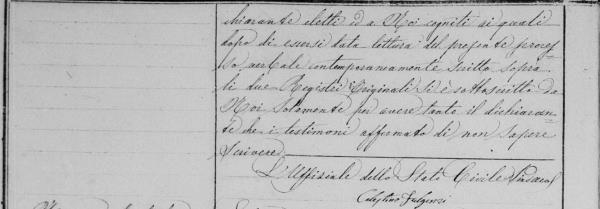 chiarante eletti ed a Noi cogniti ai quali
dopo di essersi data lettura del presente proces=
so verbale contemporaneamente scritto sopra
li due Registri Originali si è sottoscritto da
Noi solamente per avere tanto il dichiaran=
te che i testimoni affermato di non sapere
scrivere
L'Uffiziale dello Stato Civile Sindaco
Celestino